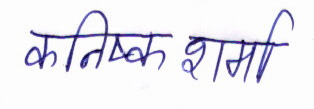 कनिष्क शर्मा